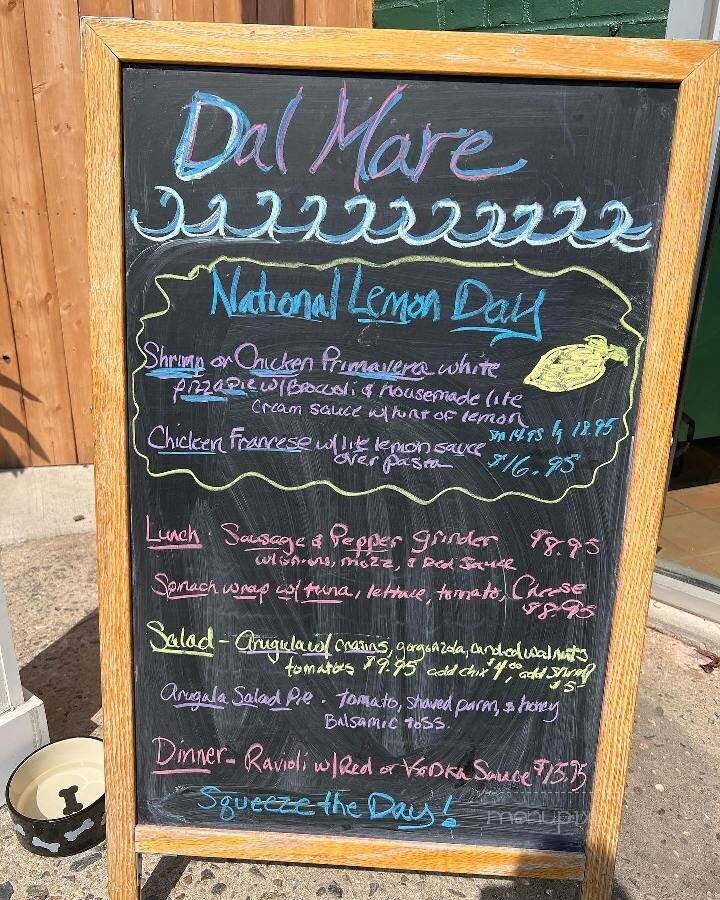 Dal Mare
National Lemon Day
Shrimp or Chicken Primavera white
pizza Pie w/ Brocoli & housemade lite
Cream sauce w/ hint of lemon
sm 14.95 lg 18.95
Chicken Franrese w/ lite lemon sauce
over pasta $16.95
Lunch. Sausage & Pepper grinder $8.95
w/ onions, mozz, & Red Sauce
Spinach wrap w/ tuna, lettuce, tomato, Cheese
$8.95
Salad - Arugula w/ crasins, gorgonzola, candied walnuts
tomatoes $9.95 add chix $4.00, add shrimp
$5-
Arugala Salad Pie - Tomato, shaved parm, & honey
Balsamic toss.
Dinner - Ravioli w/ Red or Vodka Sauce $15.95
Squeeze the Day!
menupix